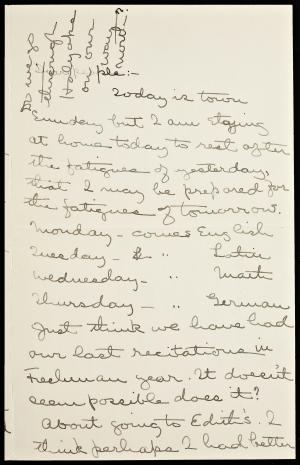 Do we go
through
today the
on our
way
home?
people:-
Today is town
Emday but I am staying
at home today to rest after
the fatigues of yesterday,
that I may be prepared for
the fatigues of tomorrow.
Monday - comes English
Tuesday - & " Latin
Wednesday - " Math
Thursday - " German
Just think we have had
our last recitations in
Freshman year. It doesn't
seem possible does it?
About going to Edith's. I
think perhaps I had better